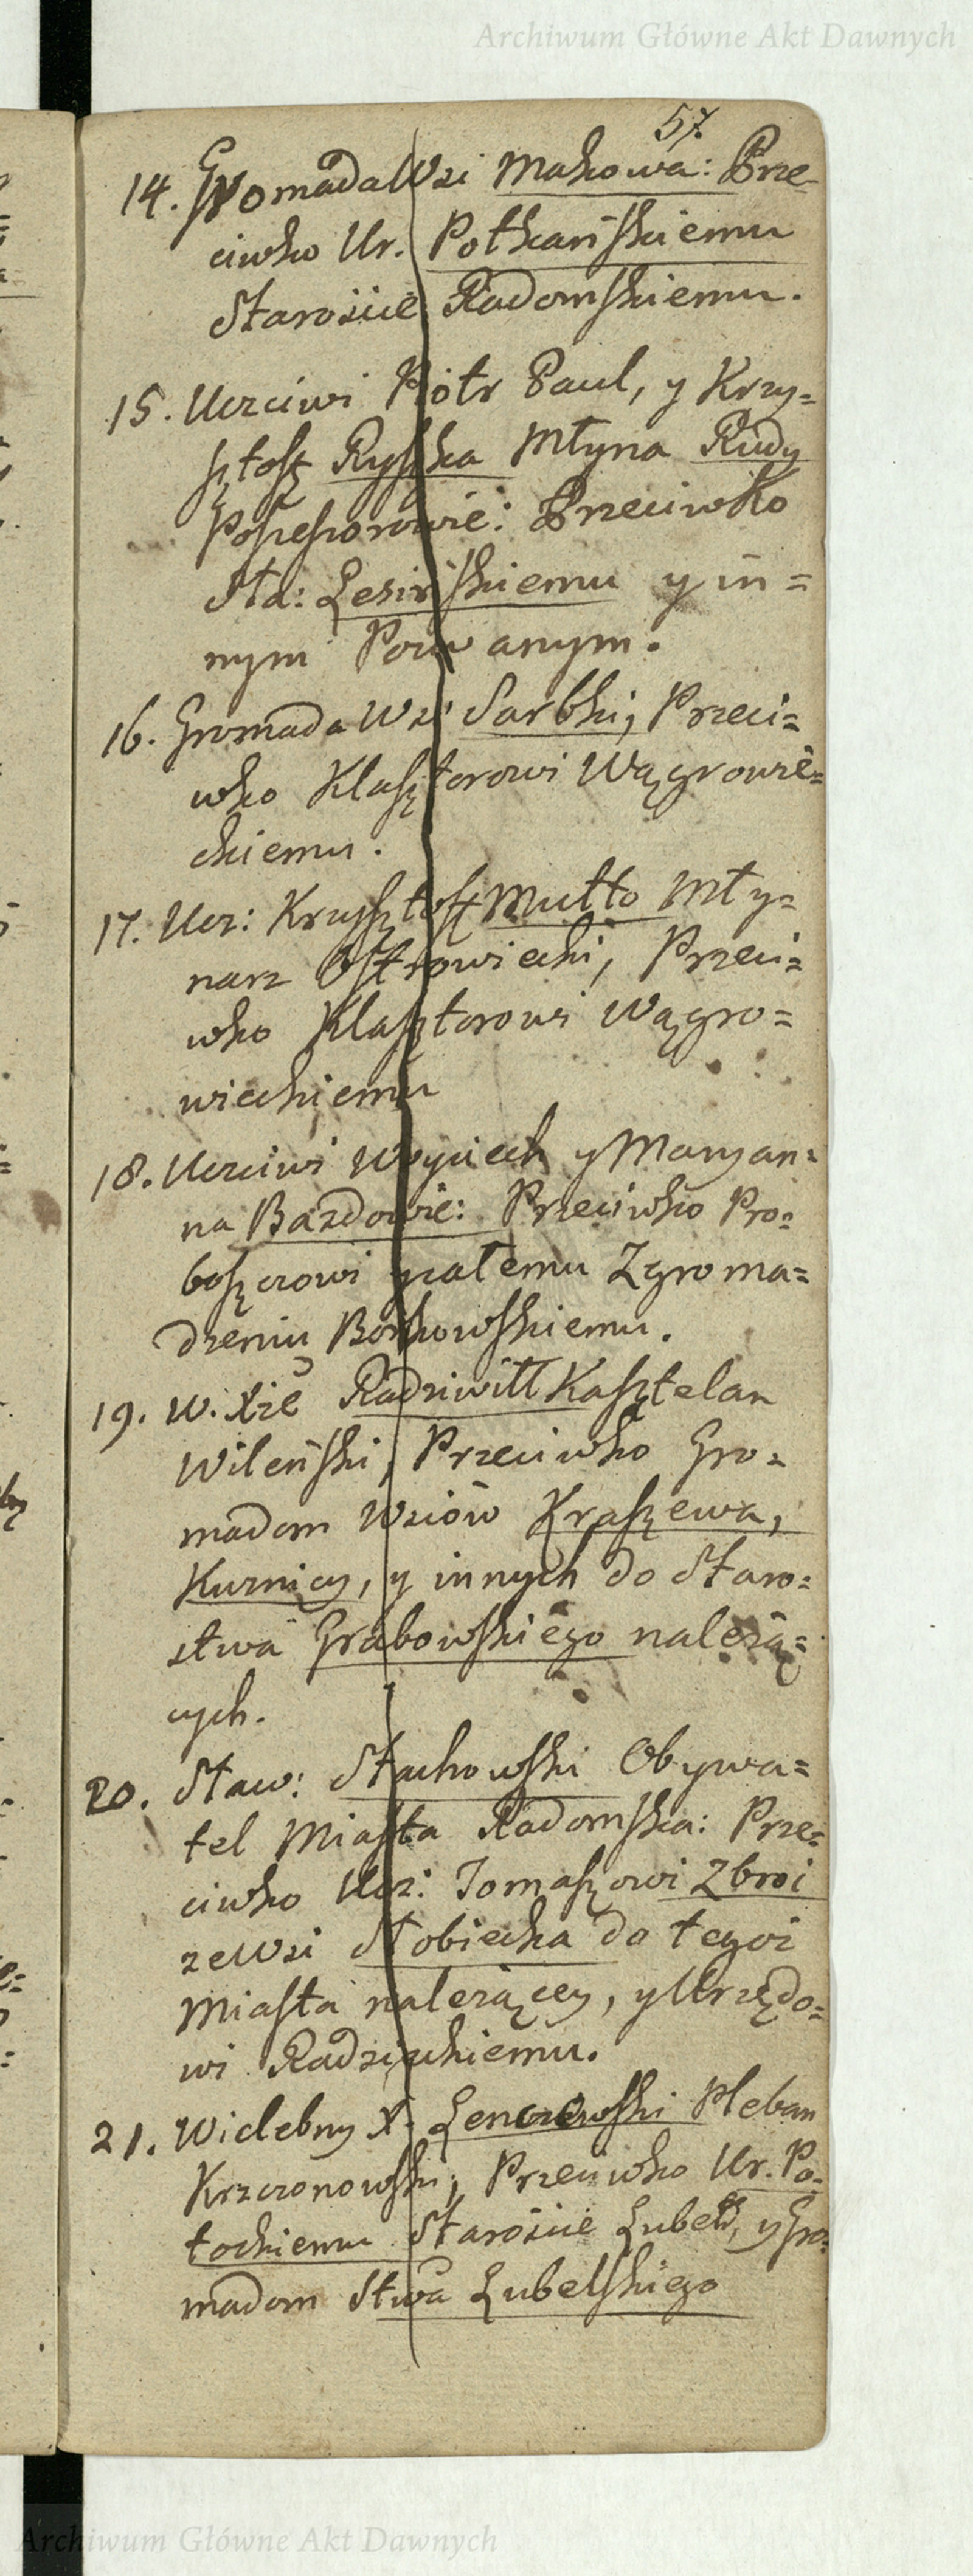 Archiwum Główne Akt Dawnych
57.
14. Gromada Wsi Makowa: Prze-
ciwko Ur. Potkańskiemu
Starościie Radomskiemu.
15. Uczciwi Piotr Paul, y Krzy=
sztosz Ryszka Młyna Rudy
Przeciwko
Sta: Lesińskiemu y in=
nym Pozwanym.
16. Gromada Wsi Sarbki, Przeci=
wko Klasztorowi Wągrowie=
ckiemu.
17. Ucz: Krzysztosz Mutto Mły=
narz Ostrowiecki, Przeci=
wko Klasztorowi Wągro=
wieckiemu
18. Uczciwi Woyciech y Maryan=
na Bazdowie: Przeciwko Pro=
boszczowi y całemu Zgroma=
dzeniu Borkowskiemu.
19. W. Xże Radziwiłł Kasztelan
Wileński, Przeciwko Gro=
madom Wsiów Kraszewa,
Kurnicy, y innych do Staro=
stwa Grabowskiego należą=
cych.
20. Sław: Stachowski Obywa=
tel Miasta Radomska: Prze=
ciwko Ucz: Tomaszowi Zbroi
ze Wsi Stobiecka do tegoż
Miasta należącey, y Urzędo=
wi Radzieckiemu.
21. Wielebny X. Lenczewski Pleban
Krzczonowski, Przeciwko Ur. Po=
tockiemu Starościie Lubel, y Gro=
madom Stwa Lubelskiego
Archiwum Główne Akt Dawnych